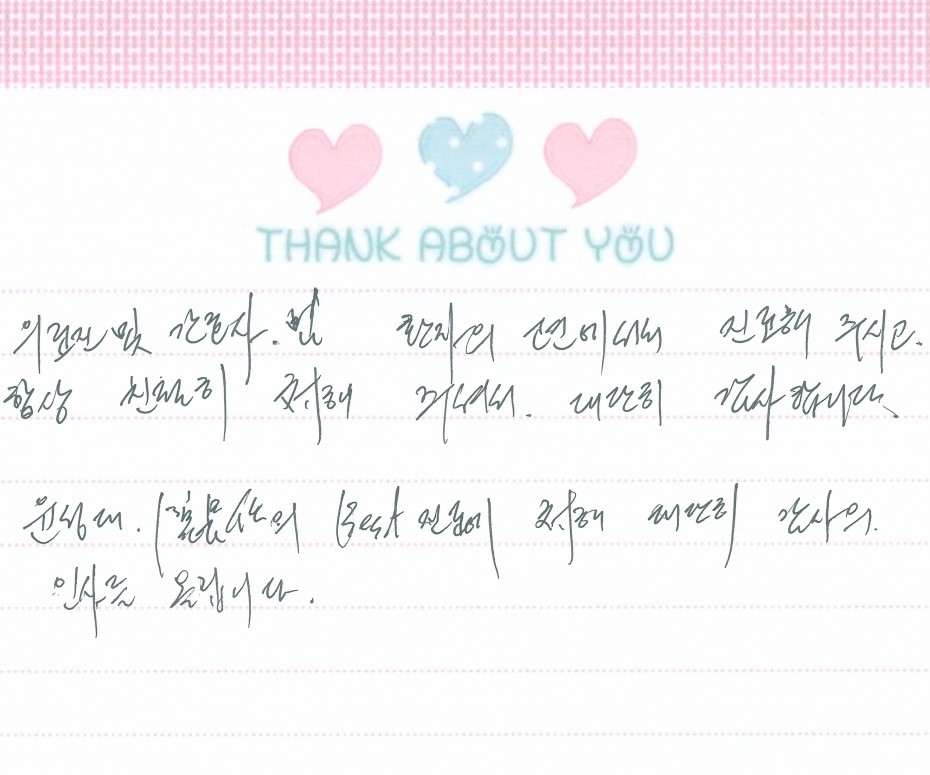 THANK ABOUT YOU
의료진 및 간호사. 환자의 편에 서서 진료해 주시고.
항상 친절히 대해 주셔서. 대단히 감사합니다.
윤성대. Best 진료에 대해 대단히 감사의.
인사를 올립니다.